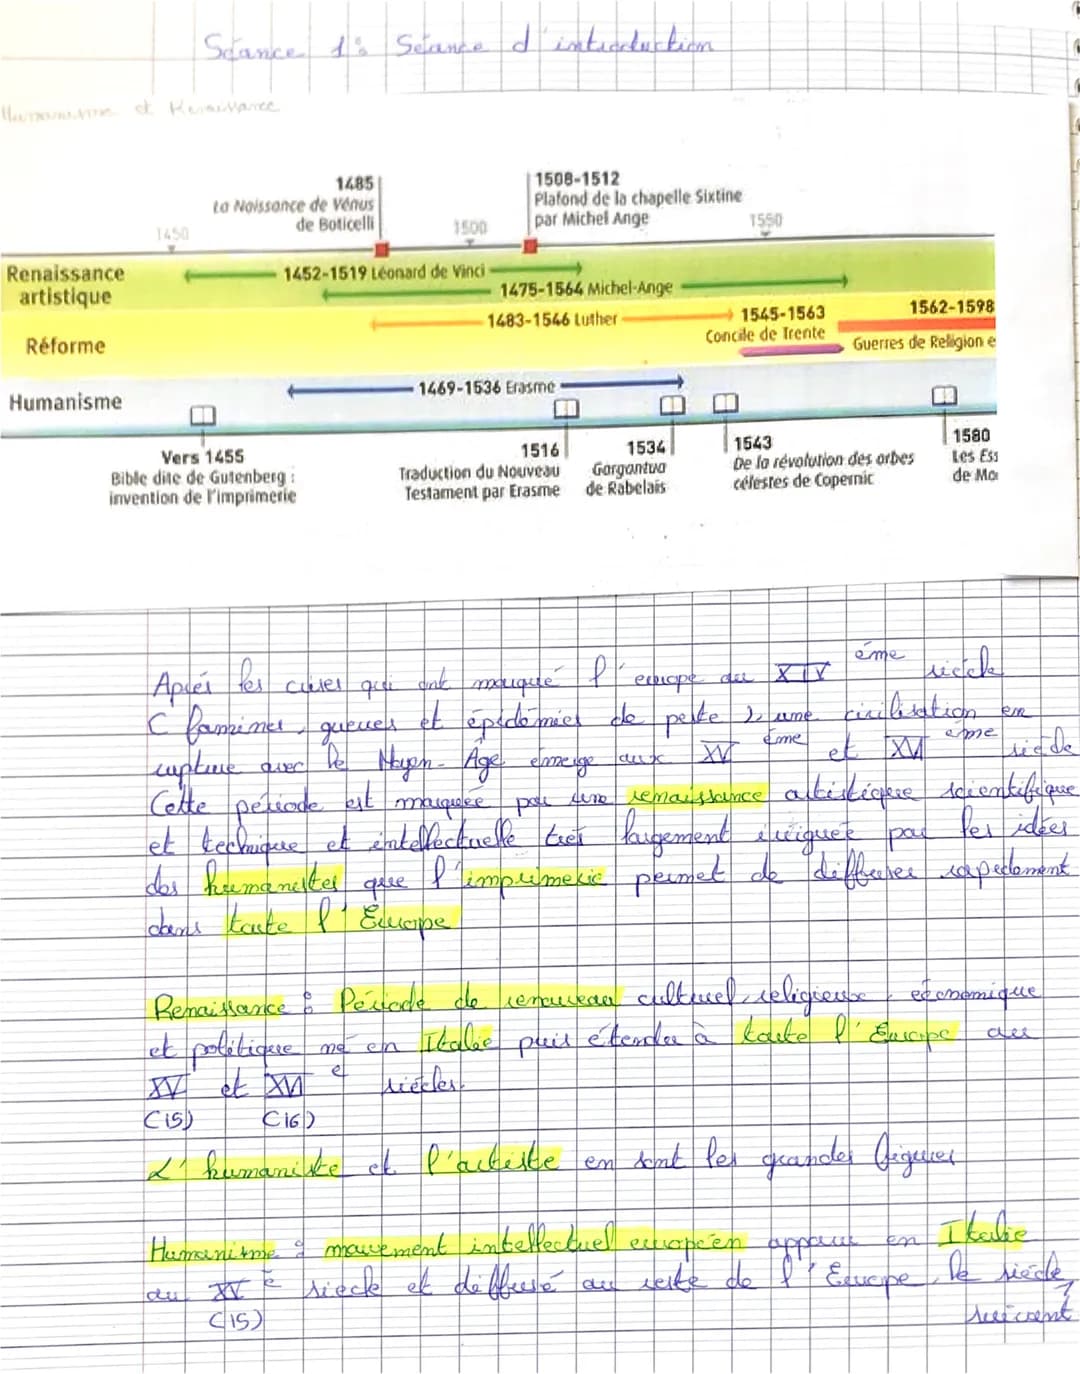 Séance 1: Séance d'introduction
Humanisme et Renaissance
1485
La Naissance de Vénus
de Boticelli
1508-1512
Plafond de la chapelle Sixtine
par Michel Ange
1450
1500
1550
Renaissance
artistique
1452-1519 Léonard de Vinci
1475-1564 Michel-Ange
Réforme
1483-1546 Luther
1545-1563
Concile de Trente
1562-1598
Guerres de Religion e
Humanisme
1469-1536 Erasme
Vers 1455
Bible dite de Gutenberg :
invention de l'imprimerie
1516
Traduction du Nouveau
Testament par Erasme
1534
Gargantua
de Rabelais
1543
De la révolution des orbes
célestes de Copernic
1580
Les Ess
de Mo
Après les crises qui ont marqué l'europe du XIV ème siècle
( famines, guerres et épidémies de peste ), une civilisation en
rupture avec le Moyen-Âge émerge aux XV ème et XVI ème siècle
Cette période est marquée par une renaissance artistique scientifique
et technique et intellectuelle très largement irriguée par les idées
des humanistes que l'imprimerie permet de diffuser rapidement
dans toute l'Europe
Renaissance : Période de renouveau culturel, religieuse, économique
et politique né en Italie puis étendu à toute l'Europe au
XV et XVI e siècles.
(15) (16)
L'humaniste et l'artiste en sont les grandes figures
Humanisme : mouvement intellectuel européen apparu en Italie
au XV e siècle et diffusé au reste de l'Europe le siècle
(15) suivant